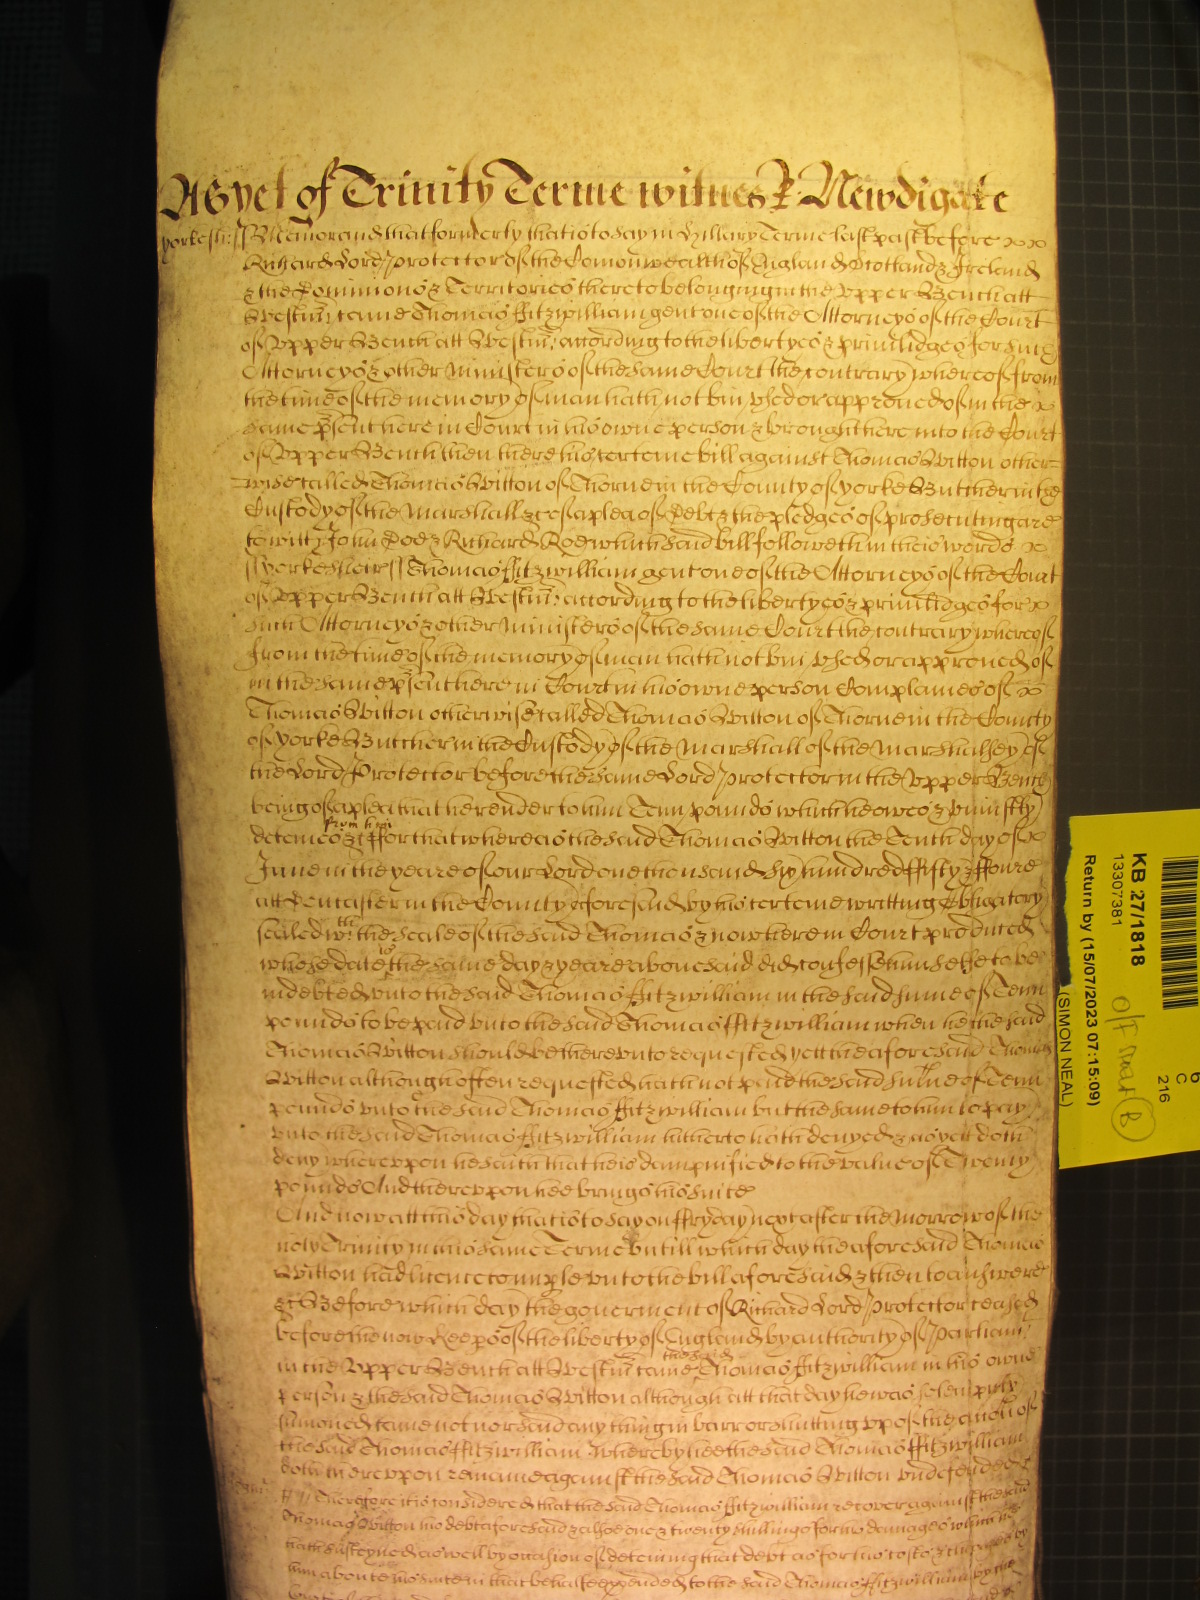 As yet of Trinity Terme witnes R: Newdigate
Yorkesh: ss Memorand that formerly that is to say in Hillary Terme last past before
Richard Lord Protector of the Comonwealth of England Scotland & Ireland
& the Dominions & Territories thereto belonging in the Vpper Bench att
Westm came Thomas ffitzwilliam gent one of the Attorneys of the Court
of Vpper Bench att Westm: according to the libertyes & priuiledges for such
Attorneys & other Ministers of the same Court the contrary whereof from
the time of the memory of man hath not bin vsed or approued of in the
same psent here in Court in his owne person & brought here into the Court
of Vpper Bench then there his certeine bill against Thomas Witton other
wise called Thomas Witton of Thorne in the County of Yorke Butcher in the
Custody of the Marshall &c of a plea of Debt & the pledges of prosecuting are
to witt John Doe & Richard Roe which said bill followeth in theis words
ss Yorkesheir ss Thomas ffitzwilliam gent one of the Attorneys of the Court
of Vpper Bench att Westm: according to the libertyes & priuiledges for
such Attorneys & other Ministers of the same Court the contrary whereof
from the time of the memory of man hath not bin vsed or approued of
in the same psent here in Court in his owne person Complaines of
Thomas Witton otherwise called Thomas Witton of Thorne in the County
of Yorke Butcher in the Custody of the Marshall of the Marshalsey of
the Lord Protector before the same Lord Protector in the Vpper Bench
being of a plea that he render to him Tenn pounds which he owes & vniustly
from him
deteines &c ffor that whereas the said Thomas Witton the Tenth day of
June in the yeare of our Lord one thousand six hundred ffifty & ffoure
att Doncaster in the County aforesaid by his certeine writting Obligatory
sealed wth the seale of the said Thomas & now here in Court produced
whose date is the same day & yeare aboue said did confesse himselfe to be
indebted vnto the said Thomas ffitzwilliam in the said sume of Tenn
pounds to be paid vnto the said Thomas ffitzwilliam when he the said
Thomas Witton should be therevnto requested yett the aforesaid Thomas
Witton although often requested hath not paid the said sume of Tenn
pounds vnto the said Thomas ffitzwilliam but the same to him to pay
vnto the said Thomas ffitzwilliam hitherto hath denyed & as yett doth
deny wherevpon he saith that he is dampnified to the value of Twenty
pounds And therevpon hee brings his suite
And now att this day that is to say on ffryday next after the Morrow of the
holy Trinity in this same Terme vntill which day the aforesaid Thomas
Witton had licence to imple vnto the bill aforesaid & then to answere
&c Before which day the gouerment of Richard Lord Protector ceased
before the now Keeps of the liberty of England by authority of Parliam
in the Vpper Bench att Westm came the said Thomas ffitzwilliam in his owne
person & the said Thomas Witton although att that day he was solempnly
sumoned came not nor said any thing in barr or shutting vp of the action of
the said Thomas ffitzwilliam whereby hee the said Thomas ffitzwilliam
doth therevpon remaine against the said Thomas Witton vndefended
Therefore it is considered that the said Thomas ffitzwilliam recover against the said
Thomas Witton his debt aforesaid & alsoe one & twenty shillings for his damages which he
hath susteyned as well by occasion of deteining that debt as for his costs & charges by
him aboute his suite in that behalfe expended to the said Thomas ffitzwilliam by the
KB 27/1818
13307381
Return by (15/07/2023 07:15:09)
(SIMON NEAL)
C
216
B